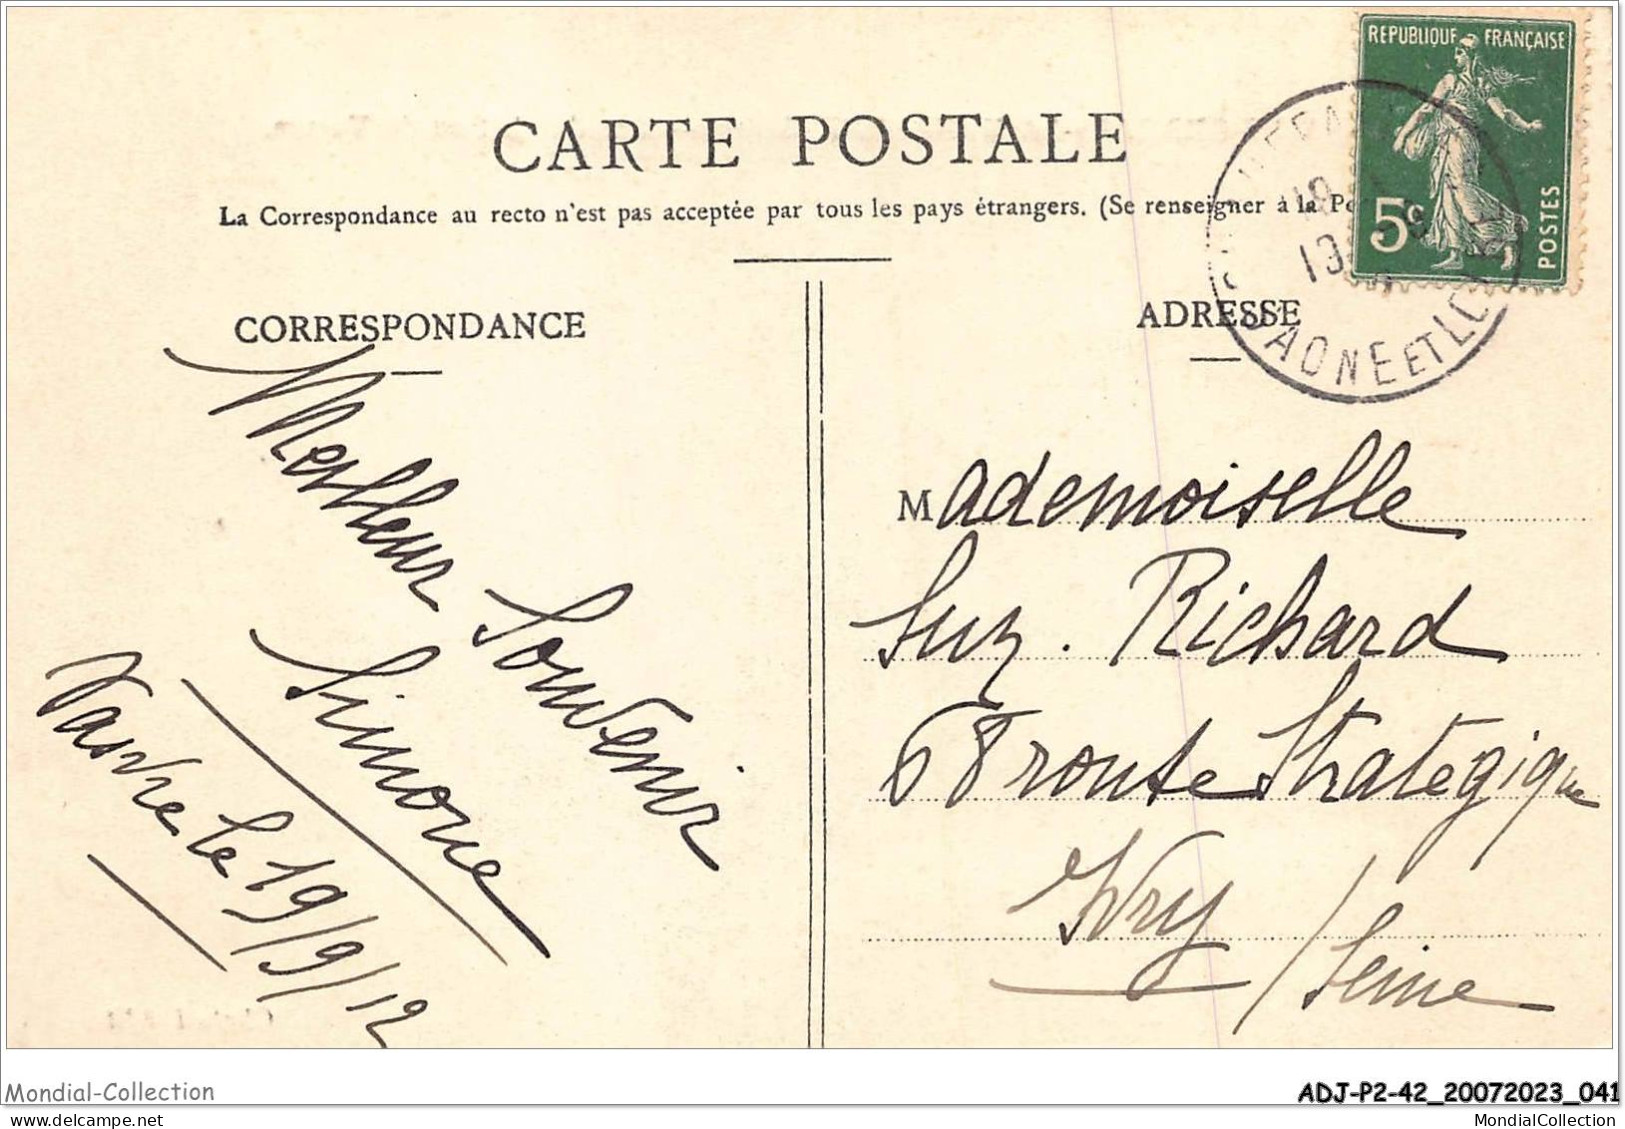 REPUBLIQUE FRANÇAISE
5c
POSTES
CARTE POSTALE
La Correspondance au recto n'est pas acceptée par tous les pays étrangers. (Se renseigner à la
SAONE ET LOIRE
CORRESPONDANCE
ADRESSE
Meilleur Souvenir
Simone
le 19/9/12
Mademoiselle
Suz. Richard
68 route Stratégique
Ivry / Seine
Mondial-Collection
ADJ-P2-42_20072023_041
MondialCollection